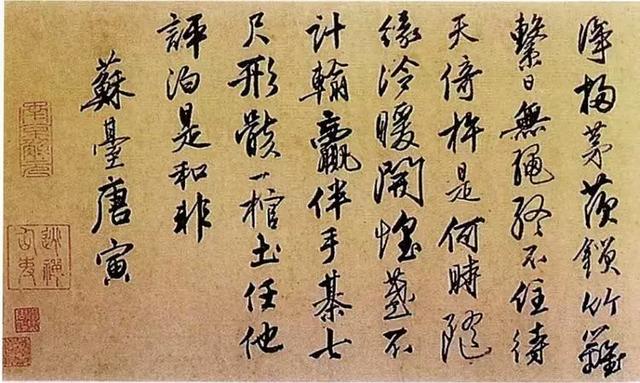 淨掃茅茨鎖竹籬
繫日無繩終不住待
天倚杵是何時隨
緣冷暖開懷盞不
計輸贏伴手棊七
尺形骸一棺土任他
評泊是和非
蘇臺唐寅
南京解元
逃禪仙吏